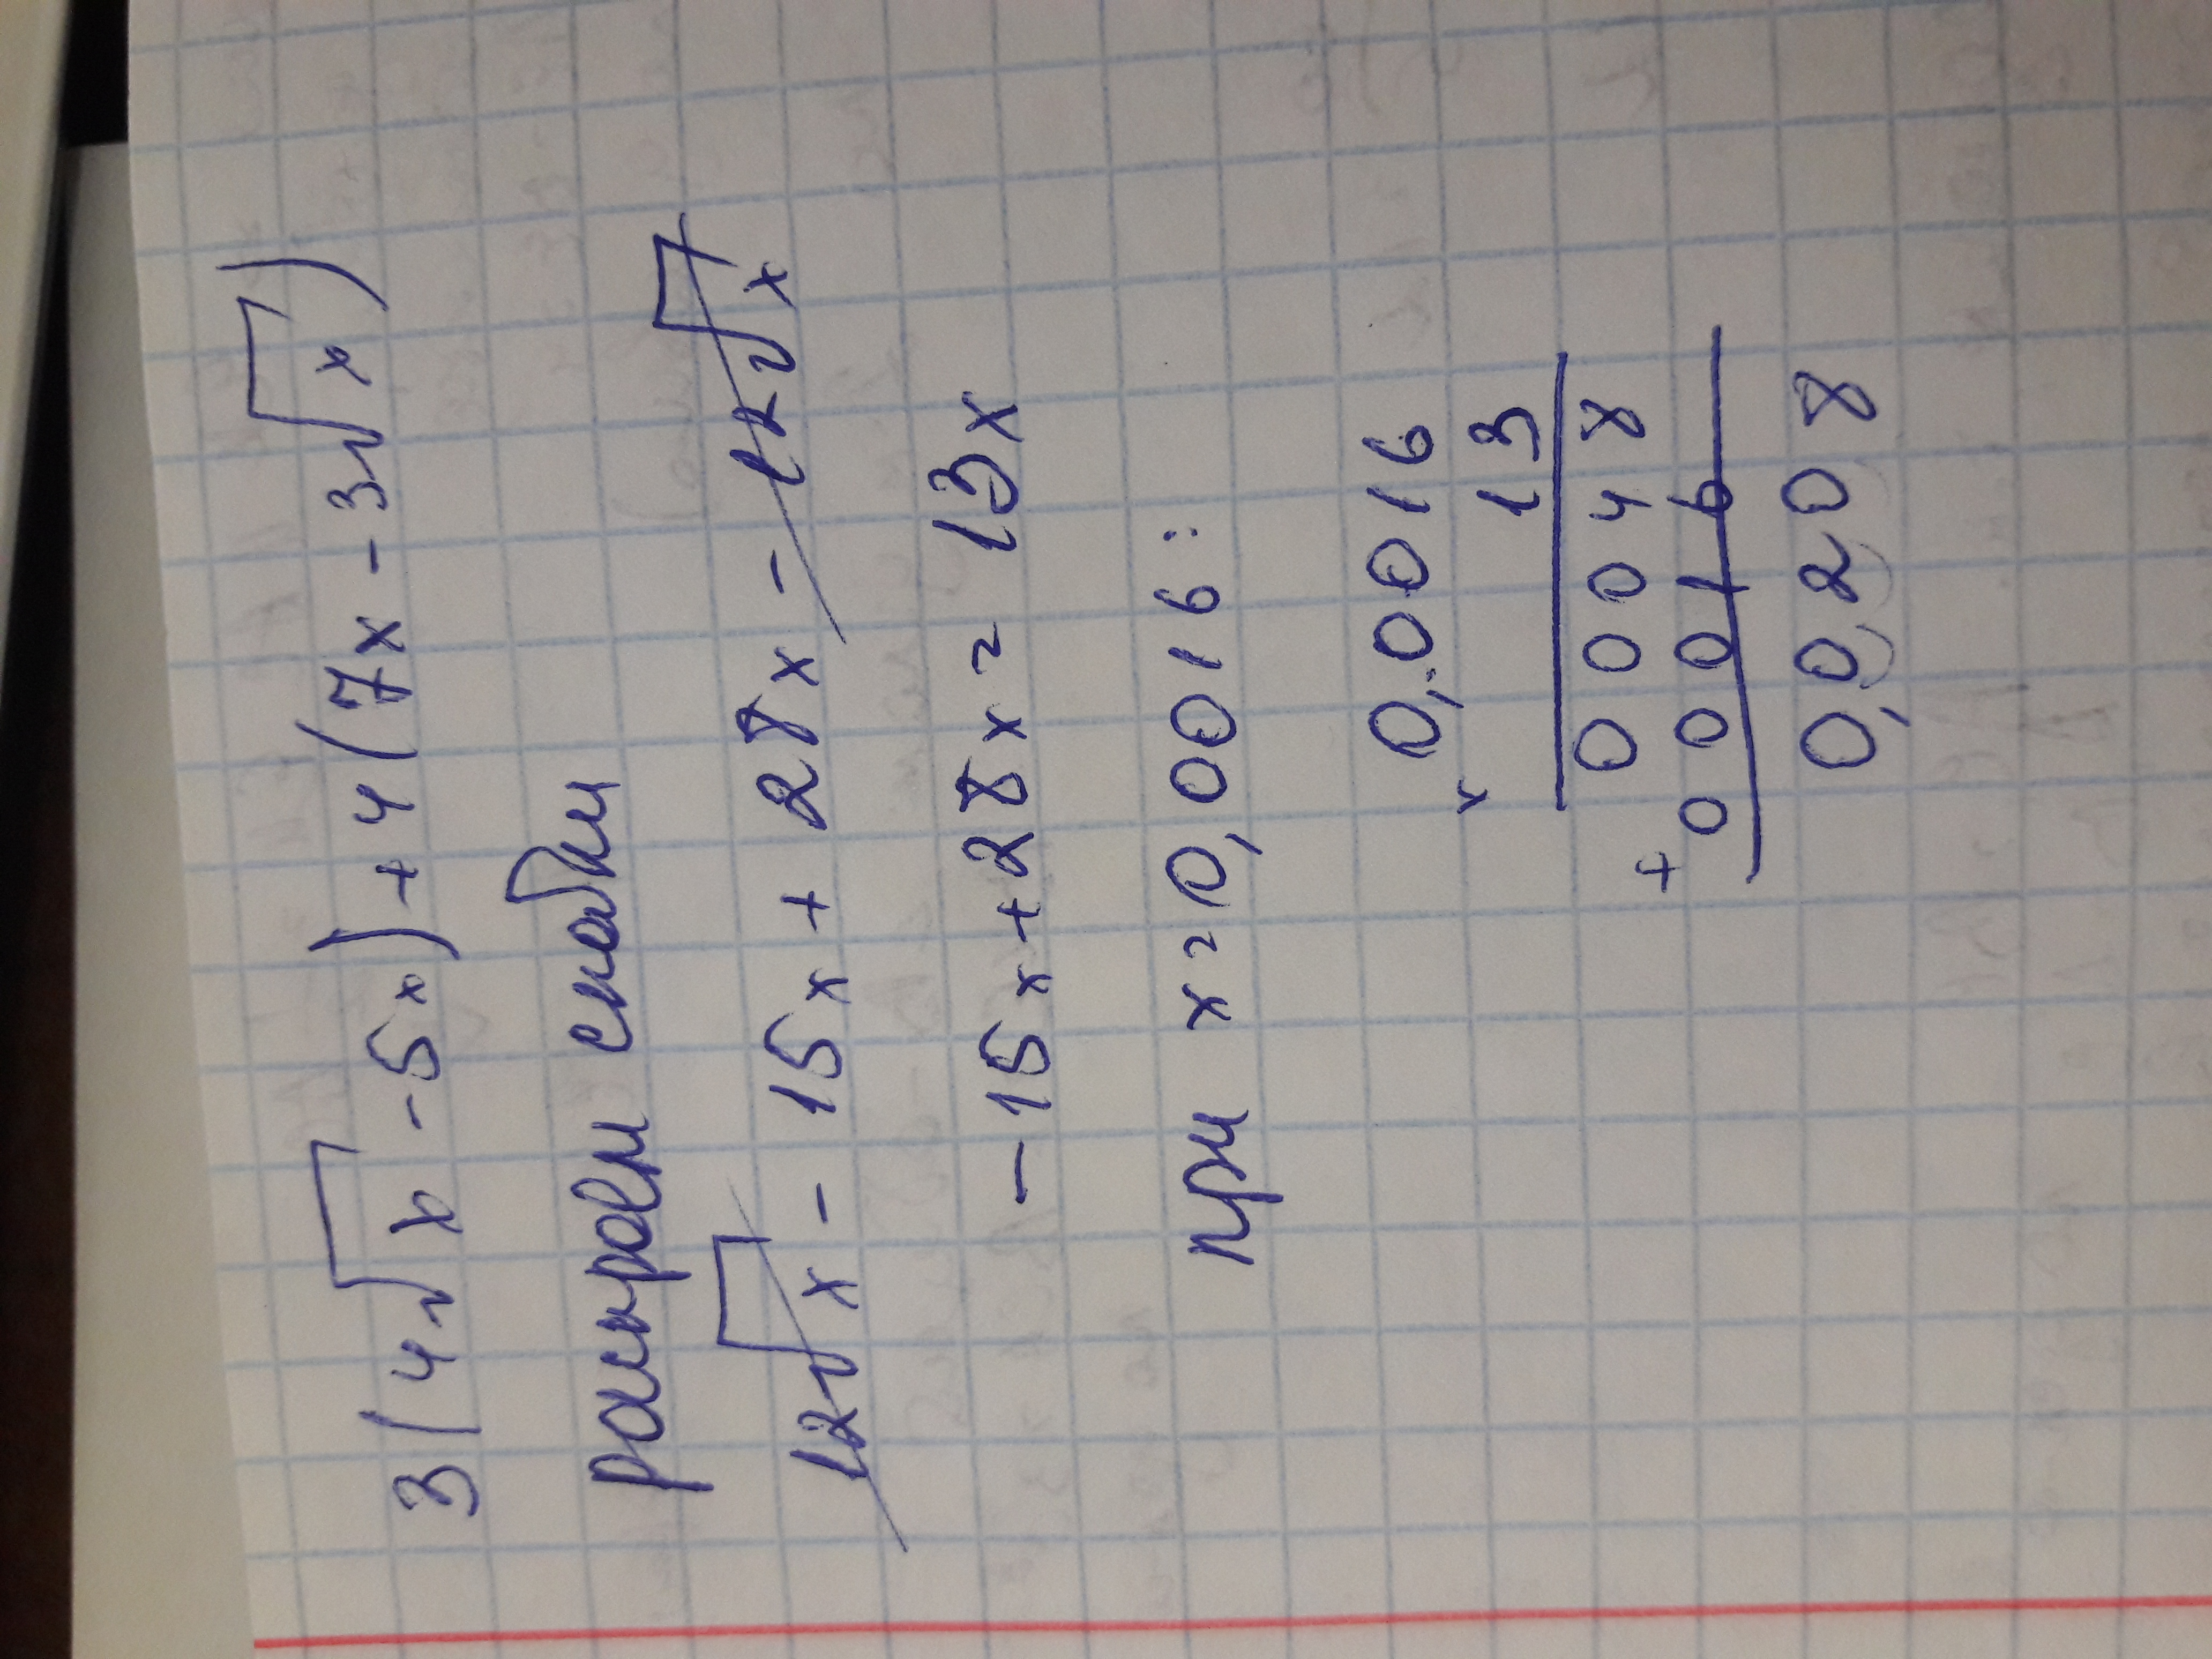 3(4√x - 5x) + 4(7x - 3√x)
раскроем скобки
12√x - 15x + 28x - 12√x
- 15x + 28x = 13x
при x = 0,0016:
0,0016
x 13
00048
+ 00016
0,0208